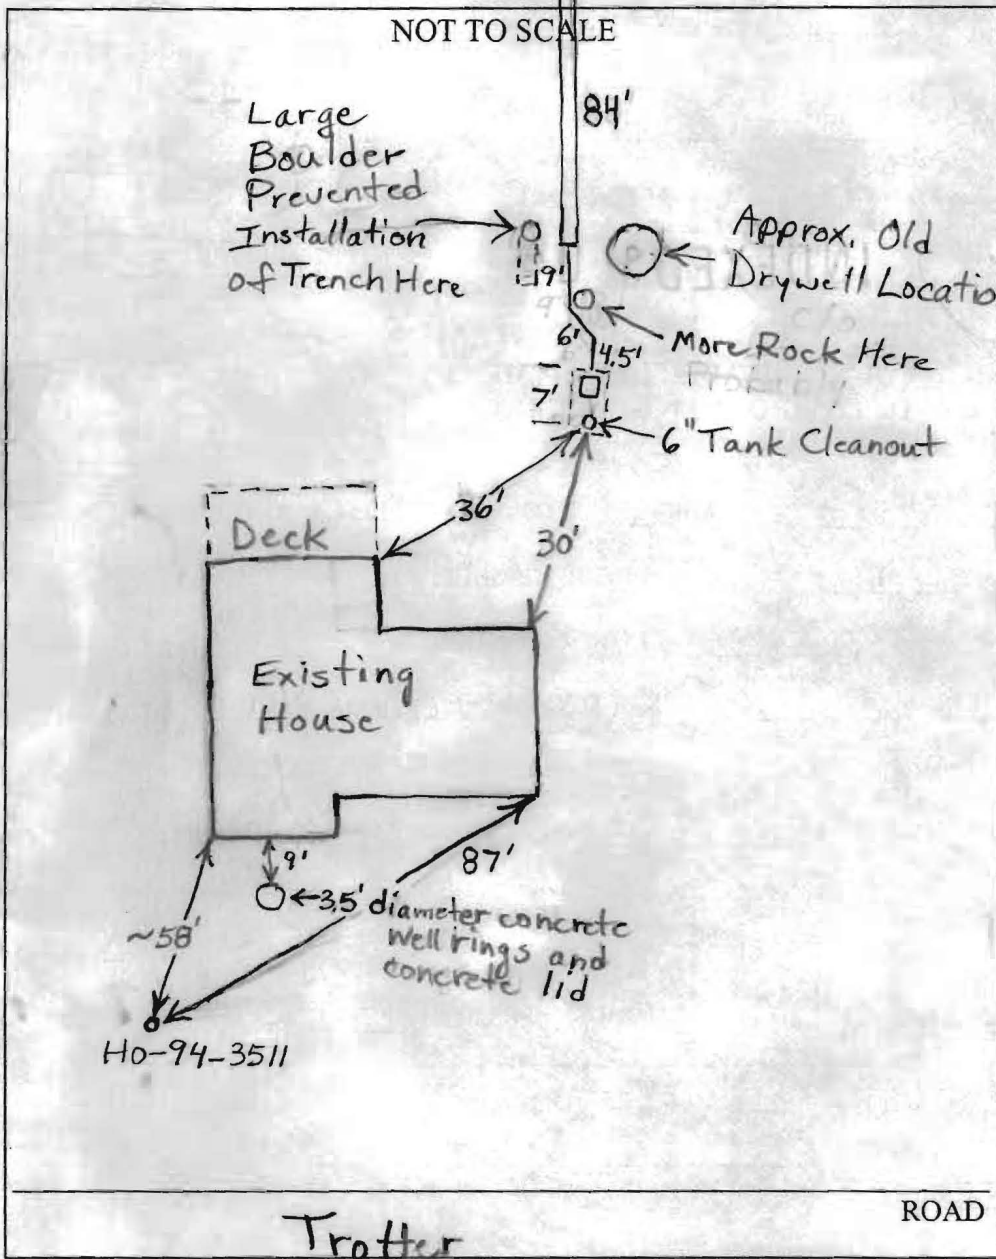 NOT TO SCALE
84'
Large
Boulder
Prevented
Installation
of Trench Here
Approx. Old
Drywell Locatio
9'
6'
4.5'
More Rock Here
7'
6" Tank Cleanout
36'
30'
Deck
Existing
House
9'
87'
3.5' diameter concrete
well rings and
concrete lid
~58'
Ho-94-3511
ROAD
Trotter